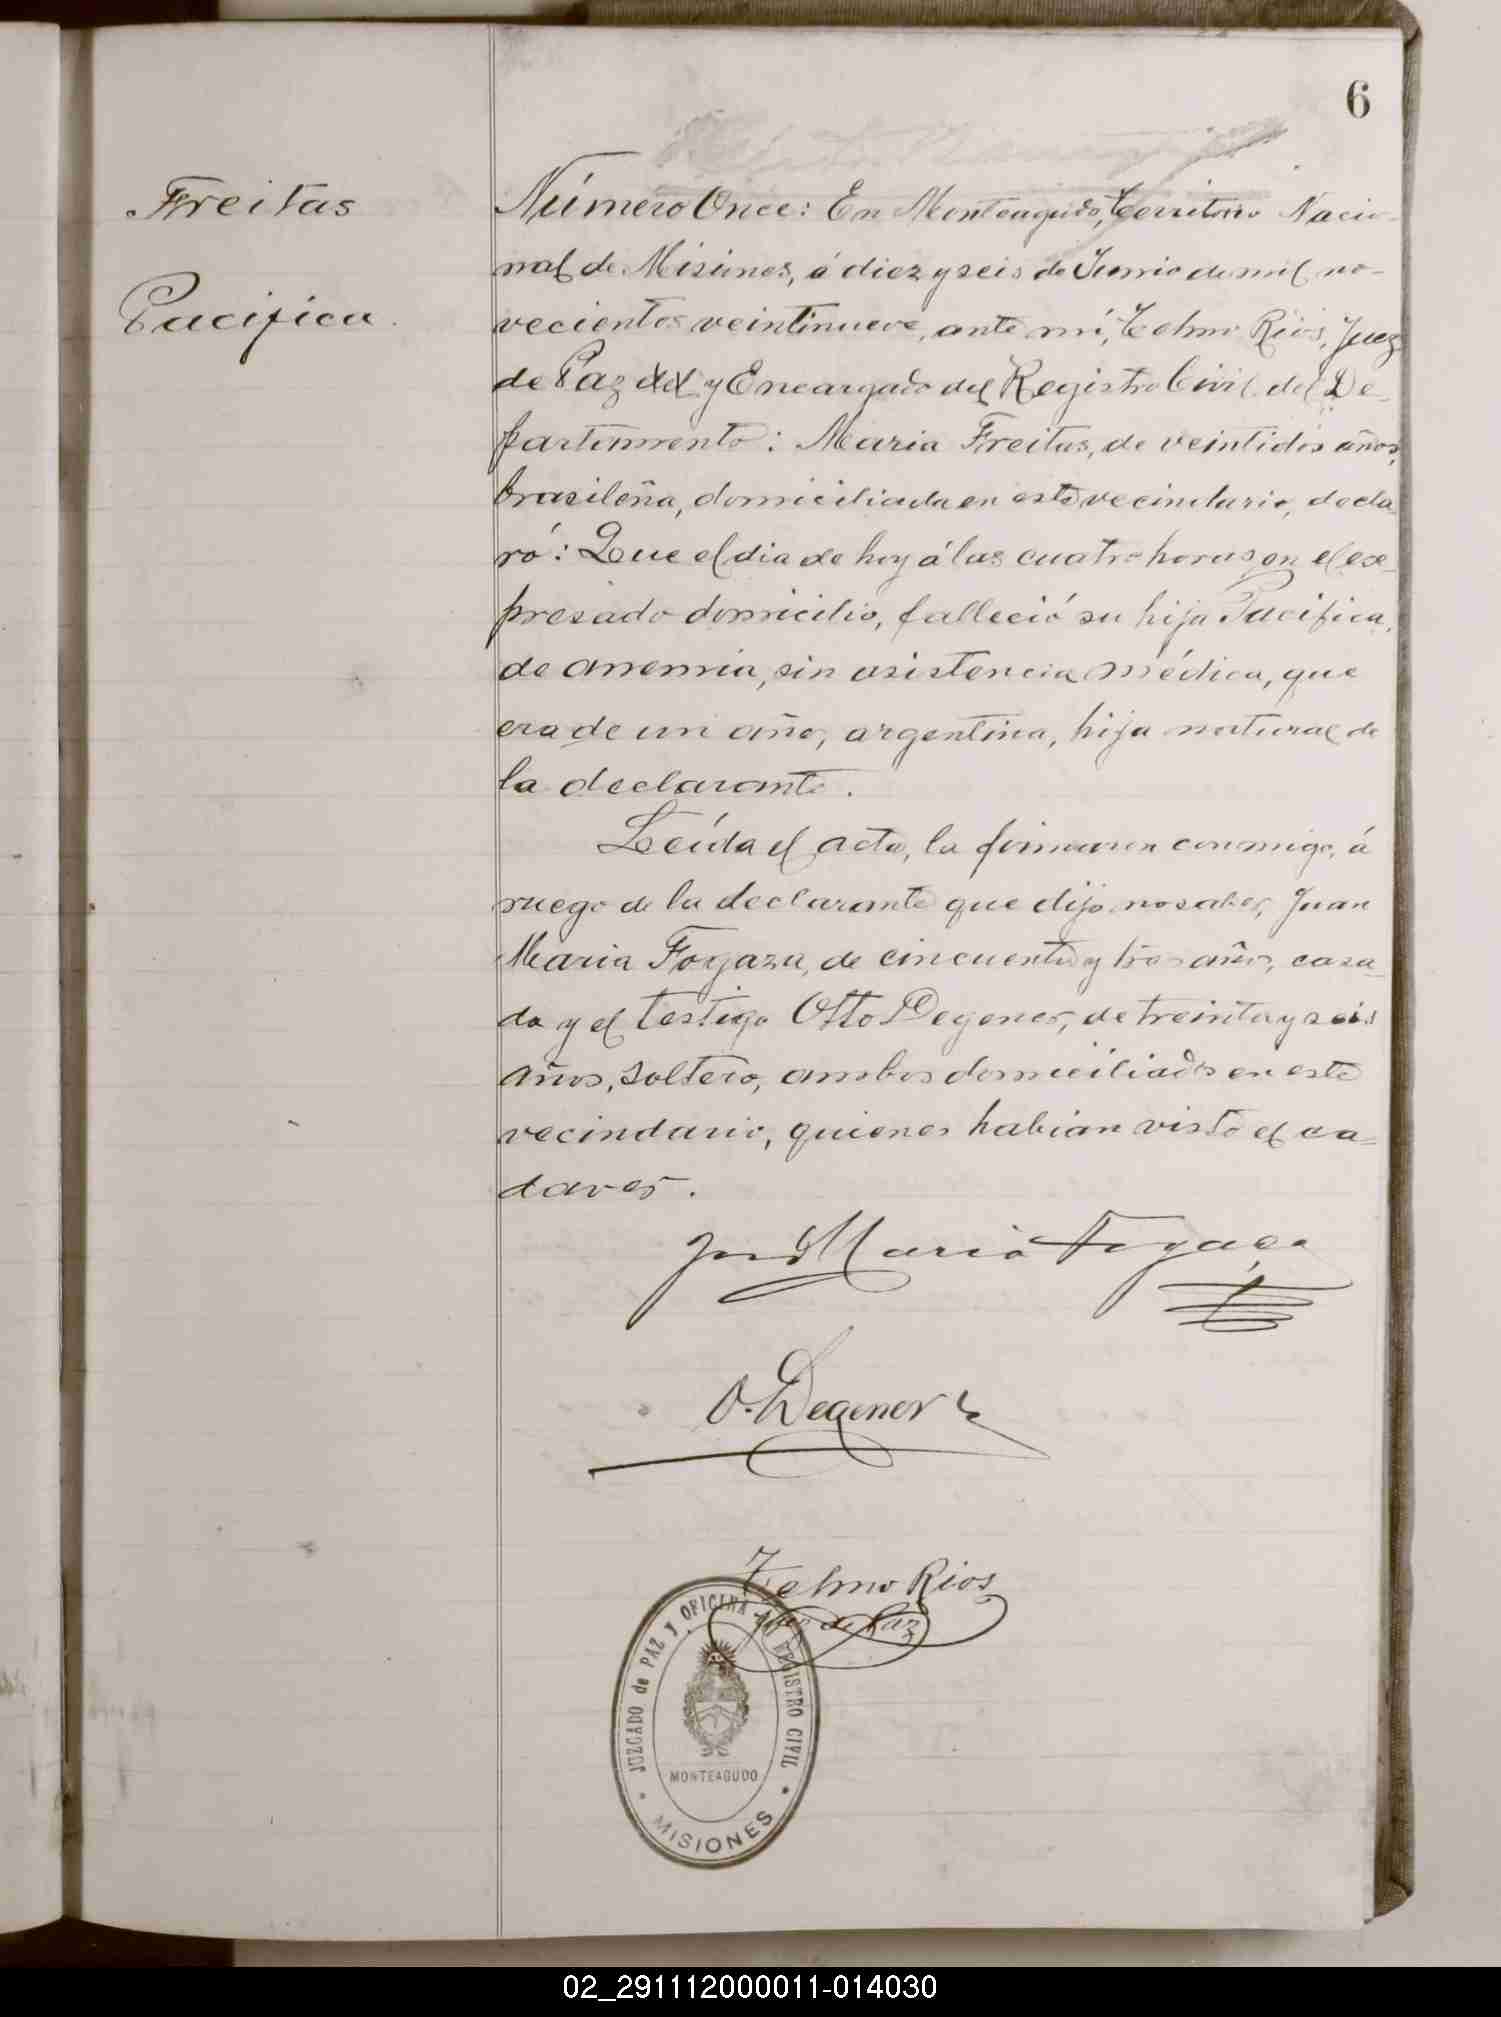 6
Freitas
Pacifica.
Número Once: En Monteagudo, Territorio Nacio-
nal de Misiones, á diez y seis de Junio de mil no-
vecientos veintinueve, ante mí, Telmo Rios, Juez
de Paz del y Encargado del Registro Civil del De-
partamento: Maria Freitas, de veintidós años,
brasileña, domiciliada en este vecindario, decla-
ró: Que el dia de hoy á las cuatro horas, en el ex-
presado domicilio, falleció su hija Pacifica,
de anemia, sin asistencia médica, que
era de un año, argentina, hija natural de
la declarante.
Leída el acta, la firmaron conmigo, á
ruego de la declarante que dijo no saber, Juan
Maria Fogaza, de cincuenta y tres años, casa-
do y el testigo Otto Degener, de treinta y seis
años, soltero, ambos domiciliados en este
vecindario, quienes habian visto el ca-
daver.
Maria Fogaça
O. Degener
Telmo Rios
Juez de Paz
JUZGADO de PAZ y OFICINA del REGISTRO CIVIL
MONTEAGUDO
MISIONES
02_291112000011-014030